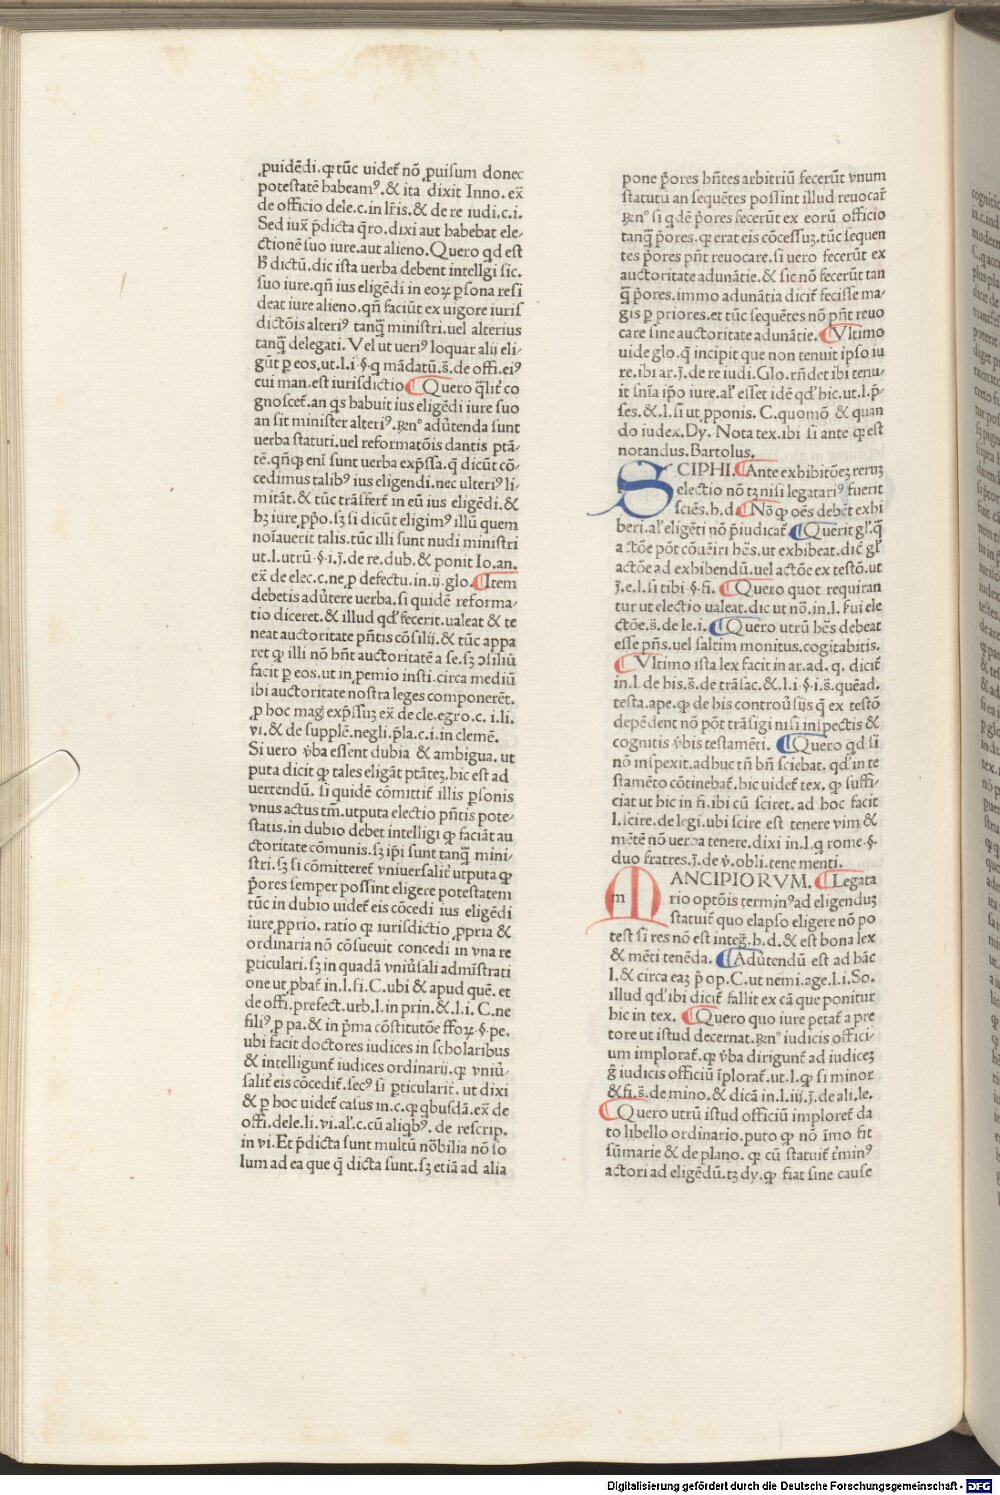 ꝓuidēdi.ꝙ tūc uidet᷑ nō ꝓuisum donec
potestatē habeamꝰ.& ita dixit Inno. ex̄
de officio dele.c.in lr̄is.& de re iudi.c.i.
Sed iux̄ p̄dicta q̄ro.dixi aut habebat ele⸗
ctionē suo iure.aut alieno.Quero qd est
h̄ dictū.dic ista uerba debent intellgi sic.
suo iure.qn̄ ius eligēdi in eoꝝ ꝑsona resi
deat iure alieno.qn̄ faciūt ex uigore iuris
dictōis alteriꝰ tanq̄ ministri.uel alterius
tanq̄ delegati. Vel ut ueriꝰ loquar alij eli⸗
gūt ꝑ eos.ut.l.i.§.q mādatū.s̄.de offi.eiꝰ
cui man.est iurisdictio Quero q̄lit᷑ co
gnoscet᷑.an qs habuit ius eligēdi iure suo
an sit minister alteriꝰ.Rn̄° adūtenda sunt
uerba statuti.uel reformatōis dantis ptā⸗
tē.qn̄qꝫ eni sunt uerba exp̄ssa.q̄ dicūt cō⸗
cedimus talibꝰ ius eligendi.nec ulteriꝰ li⸗
mitāt.& tūc trāsfert᷑ in eū ius eligēdi.&
hꝫ iure ꝓpo.sꝫ si dicūt eligimꝰ illū quem
noĩauerit talis.tūc illi sunt nudi ministri
ut.l.utrū.§.i.j̄.de re.dub.& ponit Io.an.
ex̄ de elec.c.ne ꝓ defectu.in.ij.glo. Item
debetis adūtere uerba.si quidē reforma⸗
tio diceret.& illud qd' fecerit.ualeat & te
neat auctoritate pn̄tis cōsilij.& tūc appa
ret ꝙ illi nō hn̄t auctoritatē a se.sꝫ ɔsiliū
facit ꝑ eos.ut in ꝓemio insti.circa mediū
ibi auctoritate nostra leges componerēt.
ꝓ hoc mag' exp̄ssuꝫ ex̄ de cle.egro.c.i.li.
vi.& de supplē.negli.p̄la.c.i.in clemē.
Si uero v̄ba essent dubia & ambigua. ut
puta dicit ꝙ tales eligāt ptāteꝫ.hic est ad
uertendū. si quidē cōmittit᷑ illis ꝑsonis
vnus actus tm̄.utputa electio pn̄tis pote⸗
statis.in dubio debet intelligi ꝙ faciāt au
ctoritate cōmunis.sꝫ ip̄i sunt tanq̄ mini⸗
stri.sꝫ si cōmitteret᷑ vniuersalit᷑ utputa ꝙ
p̄ores semper possint eligere potestatem
tūc in dubio uidet᷑ eis cōcedi ius eligēdi
iure ꝓprio. ratio ꝙ iurisdictio ꝓpria &
ordinaria nō cōsueuit concedi in vna re
ꝑticulari.sꝫ in quadā vniūsali admīstrati
one ut ꝓbat᷑ in.l.fi.C.ubi & apud quē. et
de offi.prefect.urb.l.in prin.& l.i. C.ne
filiꝰ ꝓ pa.& in p̄ma cōstitutōe ffoꝝ.§.pe.
ubi facit doctores iudices in scholaribus
& intelligunt᷑ iudices ordinarij.ꝙ vniū⸗
salit᷑ eis cōcedit᷑.secꝰ si ꝑticularit᷑. ut dixi
& ꝑ hoc uidet᷑ casus in.c.ꝙ qbusdā.ex̄ de
offi.dele.li.vi.al'.c.cū aliqbꝰ. de rescrip.
in vi.Et p̄dicta sunt multū nōbilia nō so
lum ad ea que q̄ dicta sunt.sꝫ etiā ad alia
pone p̄ores hn̄tes arbitriū fecerūt vnum
statutū an sequētes possint illud reuocar̄
Rn̄° si qdē p̄ores fecerūt ex eorū officio
tanq̄ p̄ores.ꝙ erat eis cōcessuꝫ.tūc sequen
tes p̄ores pn̄t reuocare.si uero fecerūt ex
auctoritate adunātie.& sic nō fecerūt tan
q̄ p̄ores.immo adunātia dicit᷑ fecisse ma⸗
gis ꝑ priores.et tūc sequētes nō pn̄t reuo
care sine auctoritate adunātie. Vltimo
uide glo.q̄ incipit que non tenuit ipso iu
re.ibi ar.j̄.de re iudi.Glo.rn̄det ibi tenu⸗
it sn̄ia ip̄o iure.al' esset idē qd' hic.ut.l.p̄⸗
ses.& l.si ut ꝓponis. C.quomō & quan
do iudex.Dy. Nota tex.ibi si ante ꝙ est
notandus.Bartolus.
SCIPHI. Ante exhibitōeꝫ reruꝫ
electio nō tꝫ nisi legatariꝰ fuerit
sciēs.h.d. Nō ꝙ oēs debēt exhi
beri.al' eligēti nō p̄iudicat᷑ Querit gl'.q̄
actōe pōt cōueīri hēs.ut exhibeat.dic gl'
actōe ad exhibendū.uel actōe ex testō.ut
j̄.e.l.si tibi.§.fi. Quero quot requiran
tur ut electio ualeat.dic ut nō.in.l. fui ele
ctōe.s̄.de le.i. Quero utrū hēs debeat
esse pn̄s.uel saltim monitus.cogitabitis.
Vltimo ista lex facit in ar.ad. q. dicit᷑
in.l.de his.s̄.de trāsac.&.l.i.§.i.s̄.quēad.
testa.ape.ꝙ de his controūsijs q̄ ex testō
depēdent nō pōt trāsigi nisi inspectis &
cognitis v̄bis testamēti. Quero qd si
nō inspexit.adhuc tn̄ bn̄ sciebat. qd' in te
stamēto cōtinebat᷑.hic uidet᷑ tex. ꝙ suffi⸗
ciat ut hic in fi.ibi cū sciret. ad hoc facit
l.scire.de legi.ubi scire est tenere vim &
mētē nō uerba tenere.dixi in.l.q rome.§.
duo fratres.j̄.de v̄.obli.tene menti.
MANCIPIORVM. Legata
rio optōis terminꝰ ad eligenduꝫ
statuit᷑ quo elapso eligere nō po
test si res nō est inteḡ.h.d.& est bona lex
& mēti tenēda. Adūtendū est ad hāc
l.& circa eaꝫ p̄ op.C.ut nemi.age.l.i.So.
illud qd' ibi dicit᷑ fallit ex cā que ponitur
hic in tex. Quero quo iure petat᷑ a pre
tore ut istud decernat.Rn̄° iudicis offici⸗
um implorat᷑.ꝙ v̄ba dirigunt᷑ ad iudiceꝫ
g̊ iudicis officiū īplorat᷑.ut.l.ꝙ si minor
& fi.s̄.de mino.& dicā in.l.iij.j̄.de ali.le.
Quero utrū istud officiū imploret᷑ da
to libello ordinario.puto ꝙ nō īmo fit
sūmarie & de plano. ꝙ cū statuit᷑ t̄minꝰ
actori ad eligēdū.tꝫ dy.ꝙ fiat sine cause
Digitalisierung gefördert durch die Deutsche Forschungsgemeinschaft - DFG